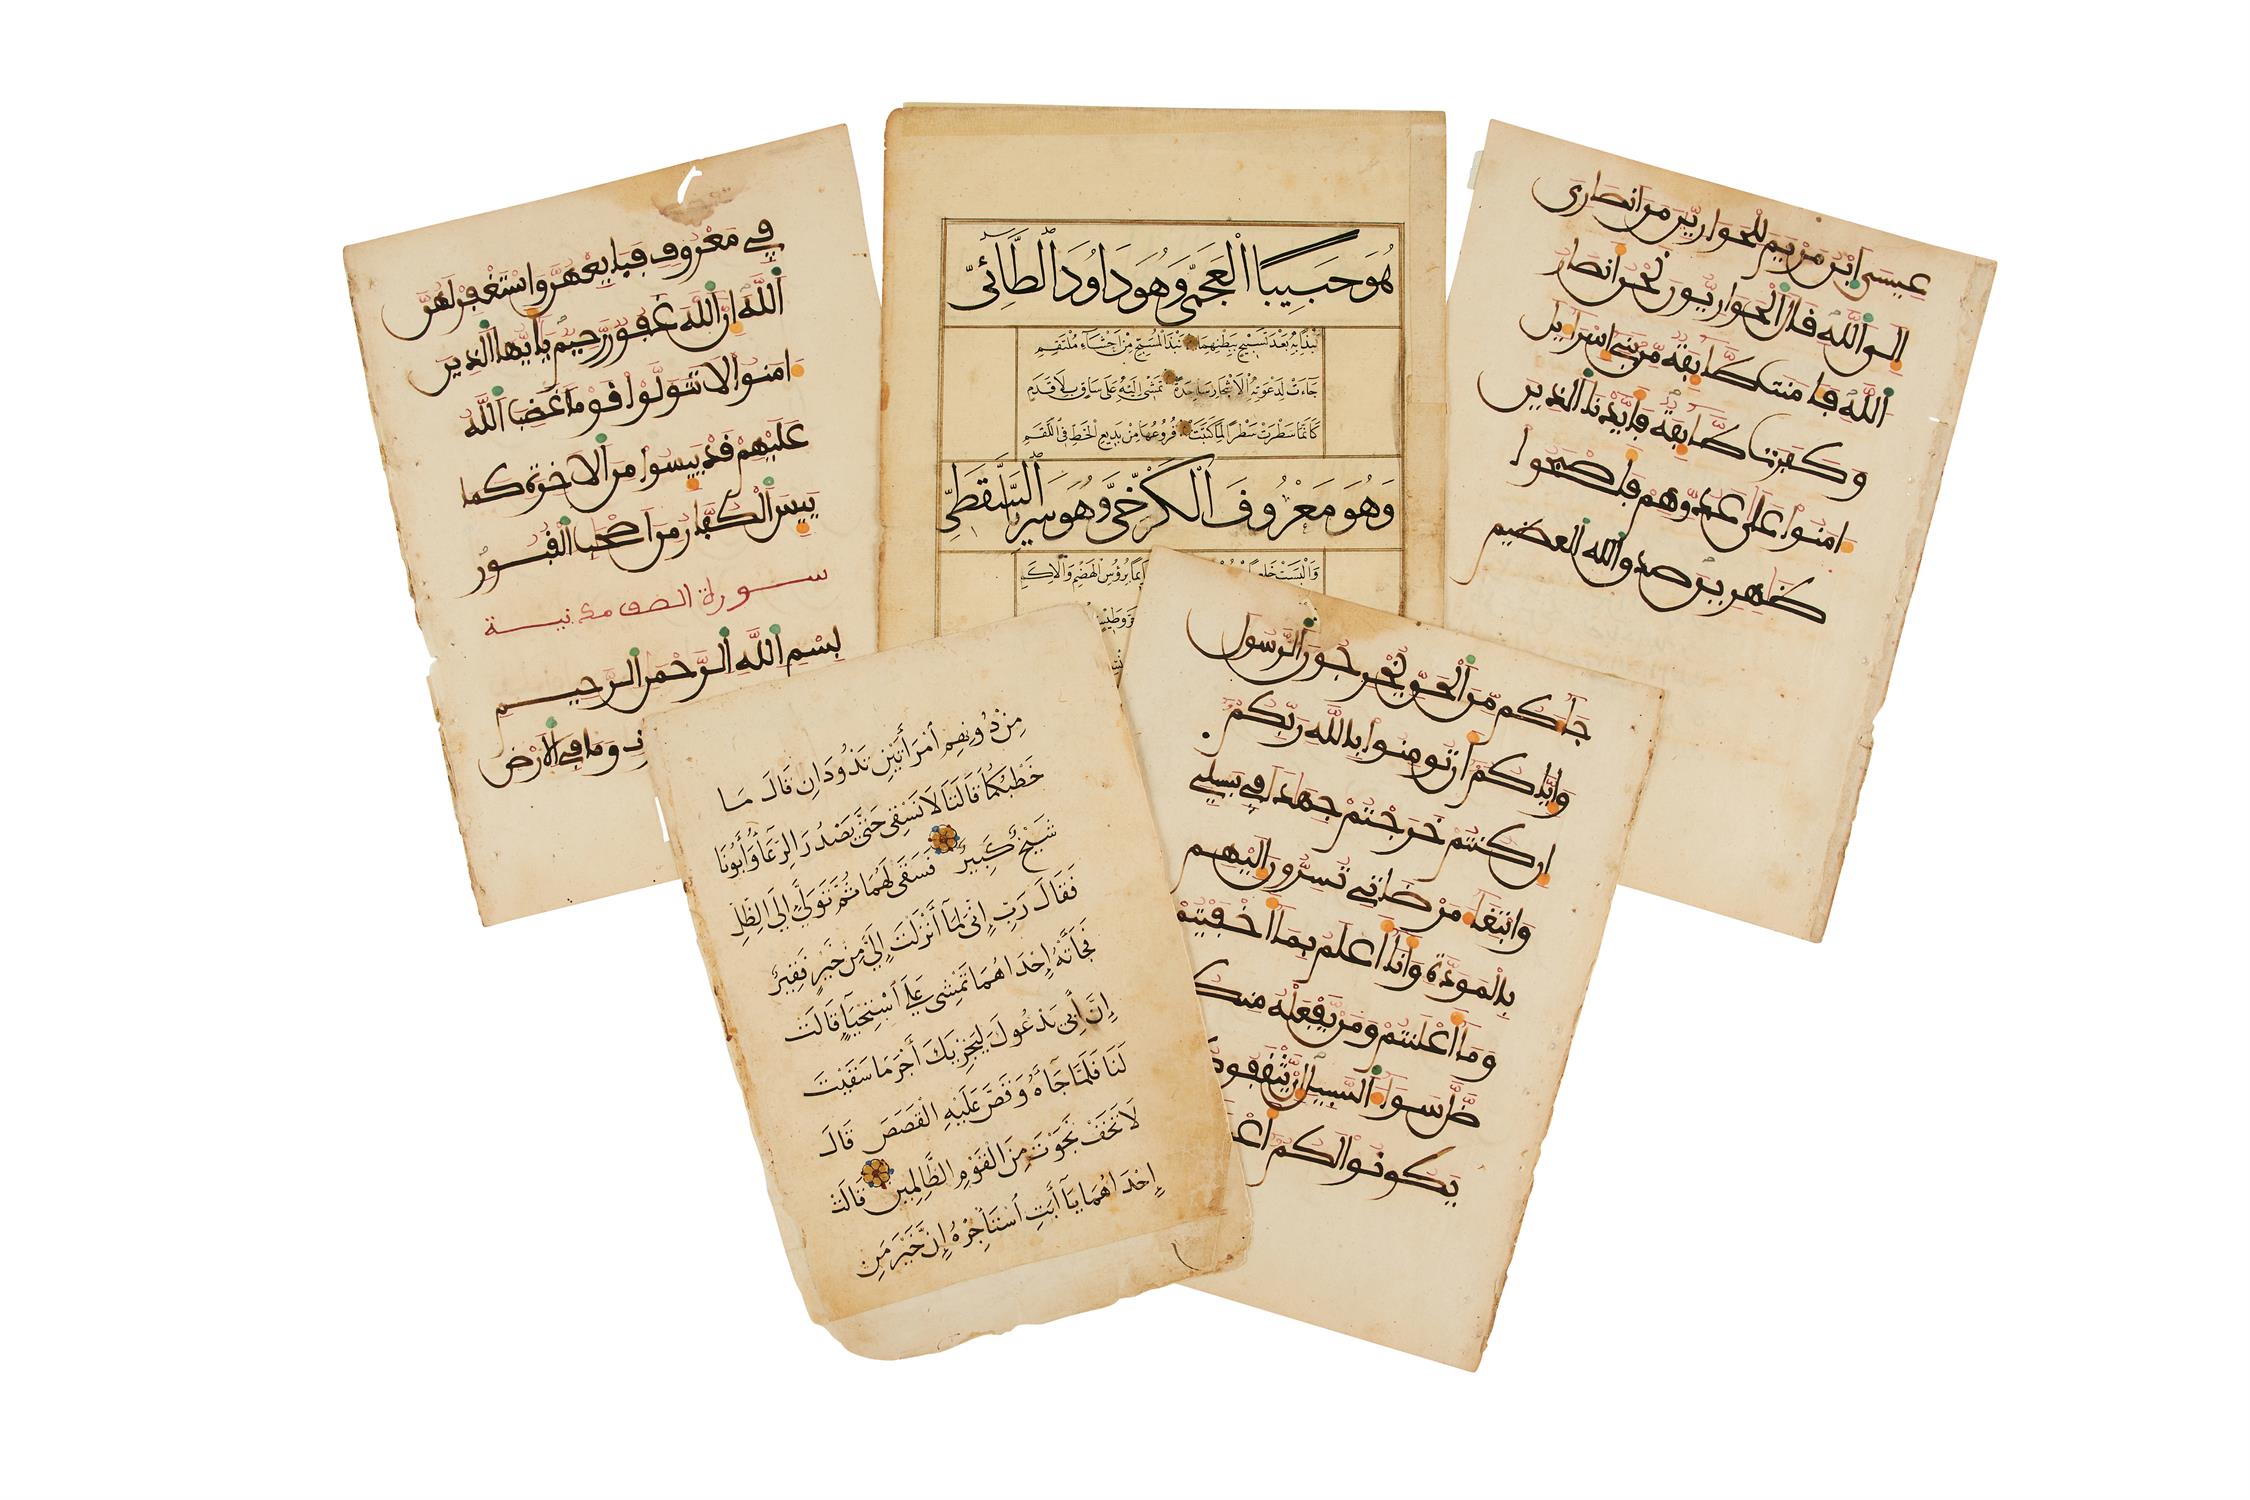 في معروف فبايعهن واستغفر لهن
الله ان الله غفور رحيم يايها الذين
امنوا لا تتولوا قوما غضب الله
عليهم قد ييسوا من الاخرة كما
ييس الكفار من اصحب القبور
سورة الصف مدنية
بسم الله الرحمن الرحيم
وما في الارض
هُوَ حَبِيبًا الْعَجَمِيّ وَهُوَ دَاوُدَ الطَّائِيّ
نَبْذًا بِهِ بَعْدَ تَسْبِيحٍ بِبَطْنِهِمَا نَبْذَ الْمُسَبِّحِ مِنْ أَحْشَاءِ مُلْتَقِمِ
جَاءَتْ لِدَعْوَتِهِ الْأَشْجَارُ سَاجِدَةً تَمْشِي إِلَيْهِ عَلَى سَاقٍ بِلَا قَدَمِ
كَأَنَّمَا سَطَرَتْ سَطْرًا لِمَا كَتَبَتْ فُرُوعُهَا مِنْ بَدِيعِ الْخَطِّ فِي اللَّقَمِ
وَهُوَ مَعْرُوفَ الْكَرْخِيّ وَهُوَ سِرِيّ السَّقَطِيّ
عيسى ابن مريم للحوارين من انصاري
الى الله قال الحواريون نحن انصار
الله فامنت طايفة من بني اسرايل
وكفرت طايفة فايدنا الذين
امنوا على عدوهم فاصبحوا
ظهرين صدق الله العظيم
مِنْ دُونِهِمِ امْرَأَتَيْنِ تَذُودَانِ قَالَ مَا
خَطْبُكُمَا قَالَتَا لَا نَسْقِي حَتَّى يَصْدُرَ الرِّعَاءُ وَأَبُونَا
شَيْخٌ كَبِيرٌ فَسَقَى لَهُمَا ثُمَّ تَوَلَّى إِلَى الظِّلِّ
فَقَالَ رَبِّ إِنِّي لِمَا أَنْزَلْتَ إِلَيَّ مِنْ خَيْرٍ فَقِيرٌ
فَجَاءَتْهُ إِحْدَاهُمَا تَمْشِي عَلَى اسْتِحْيَاءٍ قَالَتْ
إِنَّ أَبِي يَدْعُوكَ لِيَجْزِيَكَ أَجْرَ مَا سَقَيْتَ
لَنَا فَلَمَّا جَاءَهُ وَقَصَّ عَلَيْهِ الْقَصَصَ قَالَ
لَا تَخَفْ نَجَوْتَ مِنَ الْقَوْمِ الظَّالِمِينَ قَالَتْ
إِحْدَاهُمَا يَا أَبَتِ اسْتَأْجِرْهُ إِنَّ خَيْرَ مَنِ
جاكم من الحق يخرجون الرسول
واياكم ان تومنوا بالله ربكم
ان كنتم خرجتم جهدا في سبيلي
وابتغا مرضاتي تسرون اليهم
بالمودة وانا اعلم بما اخفيتم
وما اعلنتم ومن يفعله منك
ضل سوا السبيل ان يثقفوك
يكونوا لكم اعد